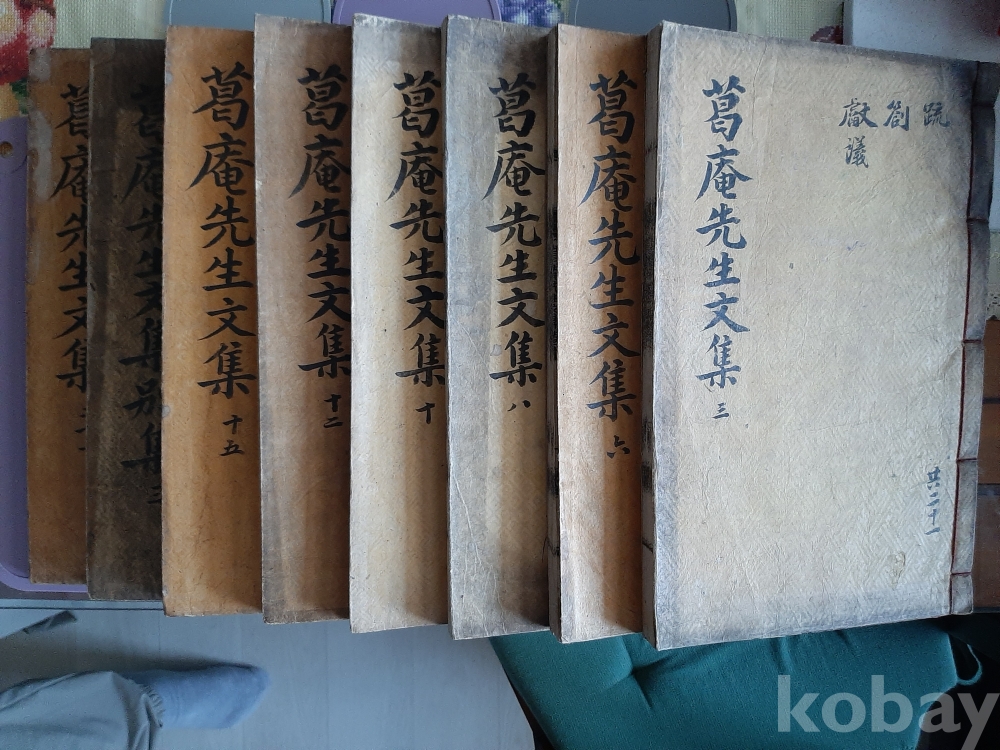 疏
箚
獻議
共二十一
葛庵先生文集 三
葛庵先生文集 六
葛庵先生文集 八
葛庵先生文集 十
葛庵先生文集 十二
葛庵先生文集 十五
葛庵先生文集別集
葛庵先生文集
kobay